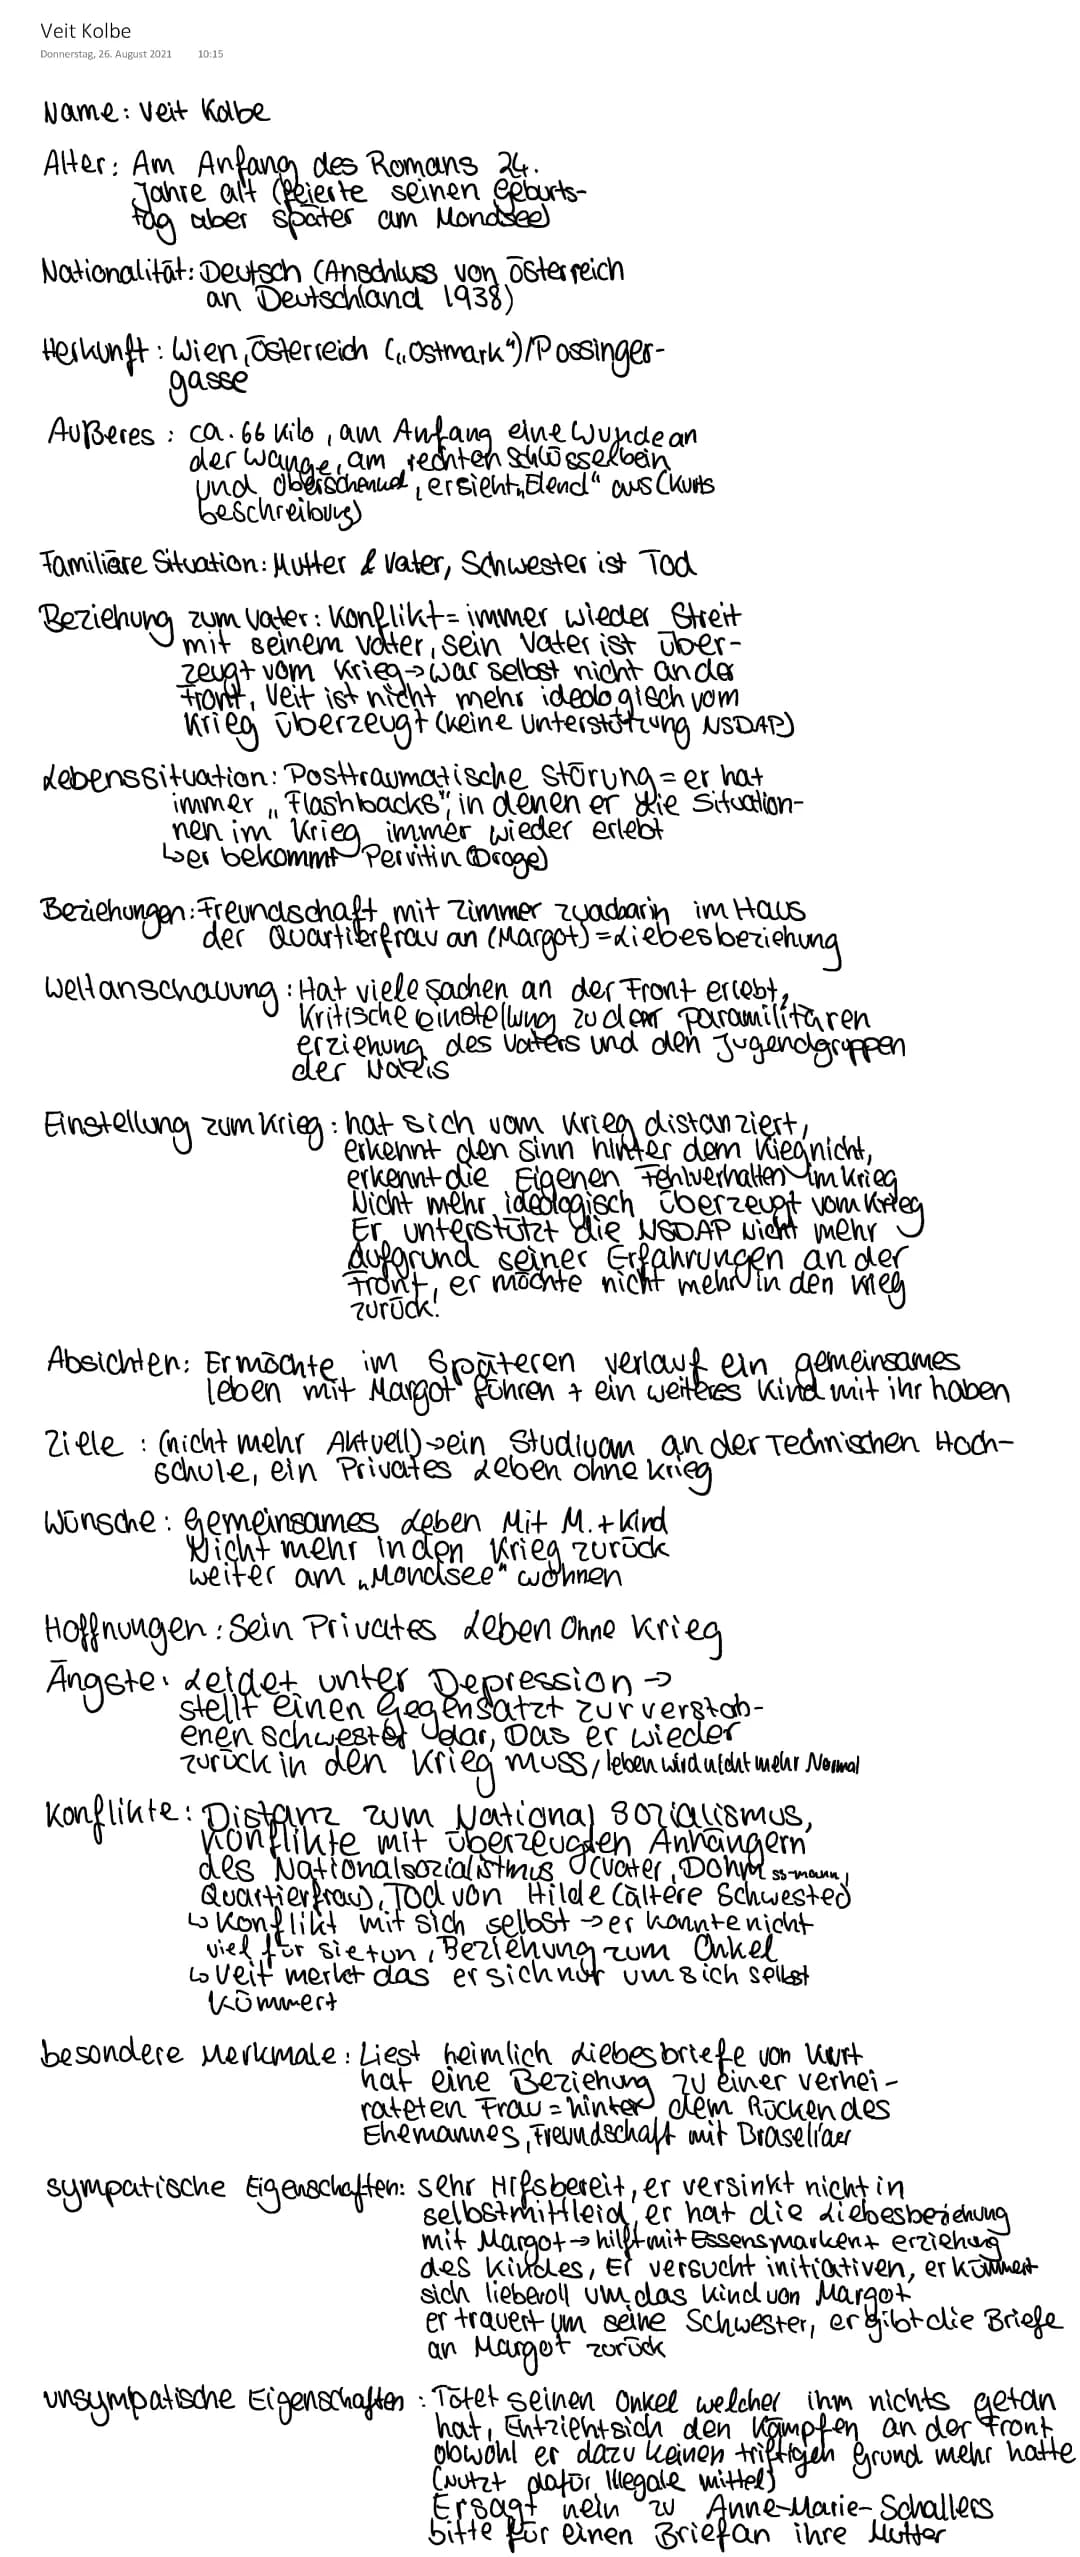 Veit Kolbe
Donnerstag, 26. August 2021 10:15
Name: Veit Kolbe
Alter: Am Anfang des Romans 24.
Jahre alt (feierte seinen Geburts-
tag aber später am Mondsee)
Nationalität: Deutsch (Anschluss von Österreich
an Deutschland 1938)
Herkunft: Wien, Österreich („Ostmark")/Possinger-
gasse
Äußeres: ca. 66 Kilo, am Anfang eine Wunde an
der Wange, am rechten Schlüsselbein
und Oberschenkel, er sieht „Elend" aus (Kurts
beschreibung)
Familiäre Situation: Mutter & Vater, Schwester ist Tod
Beziehung zum Vater: Konflikt = immer wieder Streit
mit seinem Vater, sein Vater ist über-
zeugt vom Krieg → war selbst nicht an der
Front, Veit ist nicht mehr ideologisch vom
Krieg überzeugt (keine Unterstützung NSDAP)
Lebenssituation: Posttraumatische Störung = er hat
immer „Flashbacks", in denen er die Situation-
nen im Krieg immer wieder erlebt
↳ er bekommt Pervitin (Droge)
Beziehungen: Freundschaft mit Zimmer im Haus
der Quartierfrau an (Margot) = Liebesbeziehung
Weltanschauung: Hat viele Sachen an der Front erlebt,
Kritische Einstellung zu der paramilitären
erziehung des Vaters und den Jugendgruppen
der Nazis
Einstellung zum Krieg: hat sich vom Krieg distanziert,
erkennt den Sinn hinter dem Kieg nicht,
erkennt die Eigenen Fehlverhalten im Krieg
Nicht mehr ideologisch überzeugt vom Krieg
Er unterstützt die NSDAP nicht mehr
Aufgrund seiner Erfahrungen an der
Front, er möchte nicht mehr in den Krieg
zurück!
Absichten: Er möchte im Späteren verlauf ein gemeinsames
leben mit Margot führen + ein weiteres Kind mit ihr haben
Ziele: (nicht mehr Aktuell) → ein Studium an der Technischen Hoch-
schule, ein Privates Leben ohne Krieg
Wünsche: Gemeinsames Leben Mit M. + Kind
Nicht mehr in den Krieg zurück
weiter am „Mondsee" wohnen
Hoffnungen: Sein Privates Leben Ohne Krieg
Ängste: Leidet unter Depression →
stellt einen Gegensatzt zur verstob-
enen Schwester dar, Das er wieder
zurück in den Krieg muss, leben wird nicht mehr Normal
Konflikte: Distanz zum National Sozialismus,
Konflikte mit überzeugden Anhängern
des Nationalsozialistmus (Vater, Dohm ss-mann,
Quartierfrau), Tod von Hilde (ältere Schwester)
↳ Konflikt mit sich selbst → er konnte nicht
viel für sie tun, Beziehung zum Onkel
↳ Veit merkt das er sich nur um sich selbst
kümmert
besondere Merkmale: Liest heimlich Liebesbriefe von Kurt
hat eine Beziehung zu einer verhei-
rateten Frau = hinter dem Rücken des
Ehemannes, Freundschaft mit Brasilianer
sympatische Eigenschaften: sehr Hilfsbereit, er versinkt nicht in
selbstmittleid, er hat die Liebesbeziehung
mit Margot → hilft mit Essensmarken + erziehung
des Kindes, Er versucht initiativen, er kümmert
sich lieberoll um das Kind von Margot
er trauert um seine Schwester, er gibt die Briefe
an Margot zurück
unsympatische Eigenschaften: Tötet seinen Onkel welcher ihm nichts getan
hat, Entzieht sich den Kämpfen an der Front
obwohl er dazu keinen triftigen Grund mehr hatte
(nutzt dafür Illegale mittel)
Er sagt nein zu Anne-Marie-Schallers
bitte für einen Brief an ihre Mutter